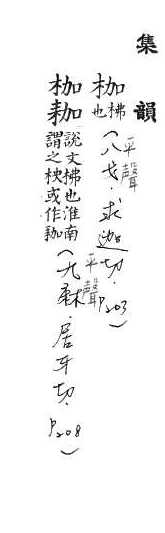 集韻
枷 柫也(平聲八戈.求迦切.P203)
枷耞 說文柫也淮南謂之柍或作耞(平聲九麻.居牙切.P208)